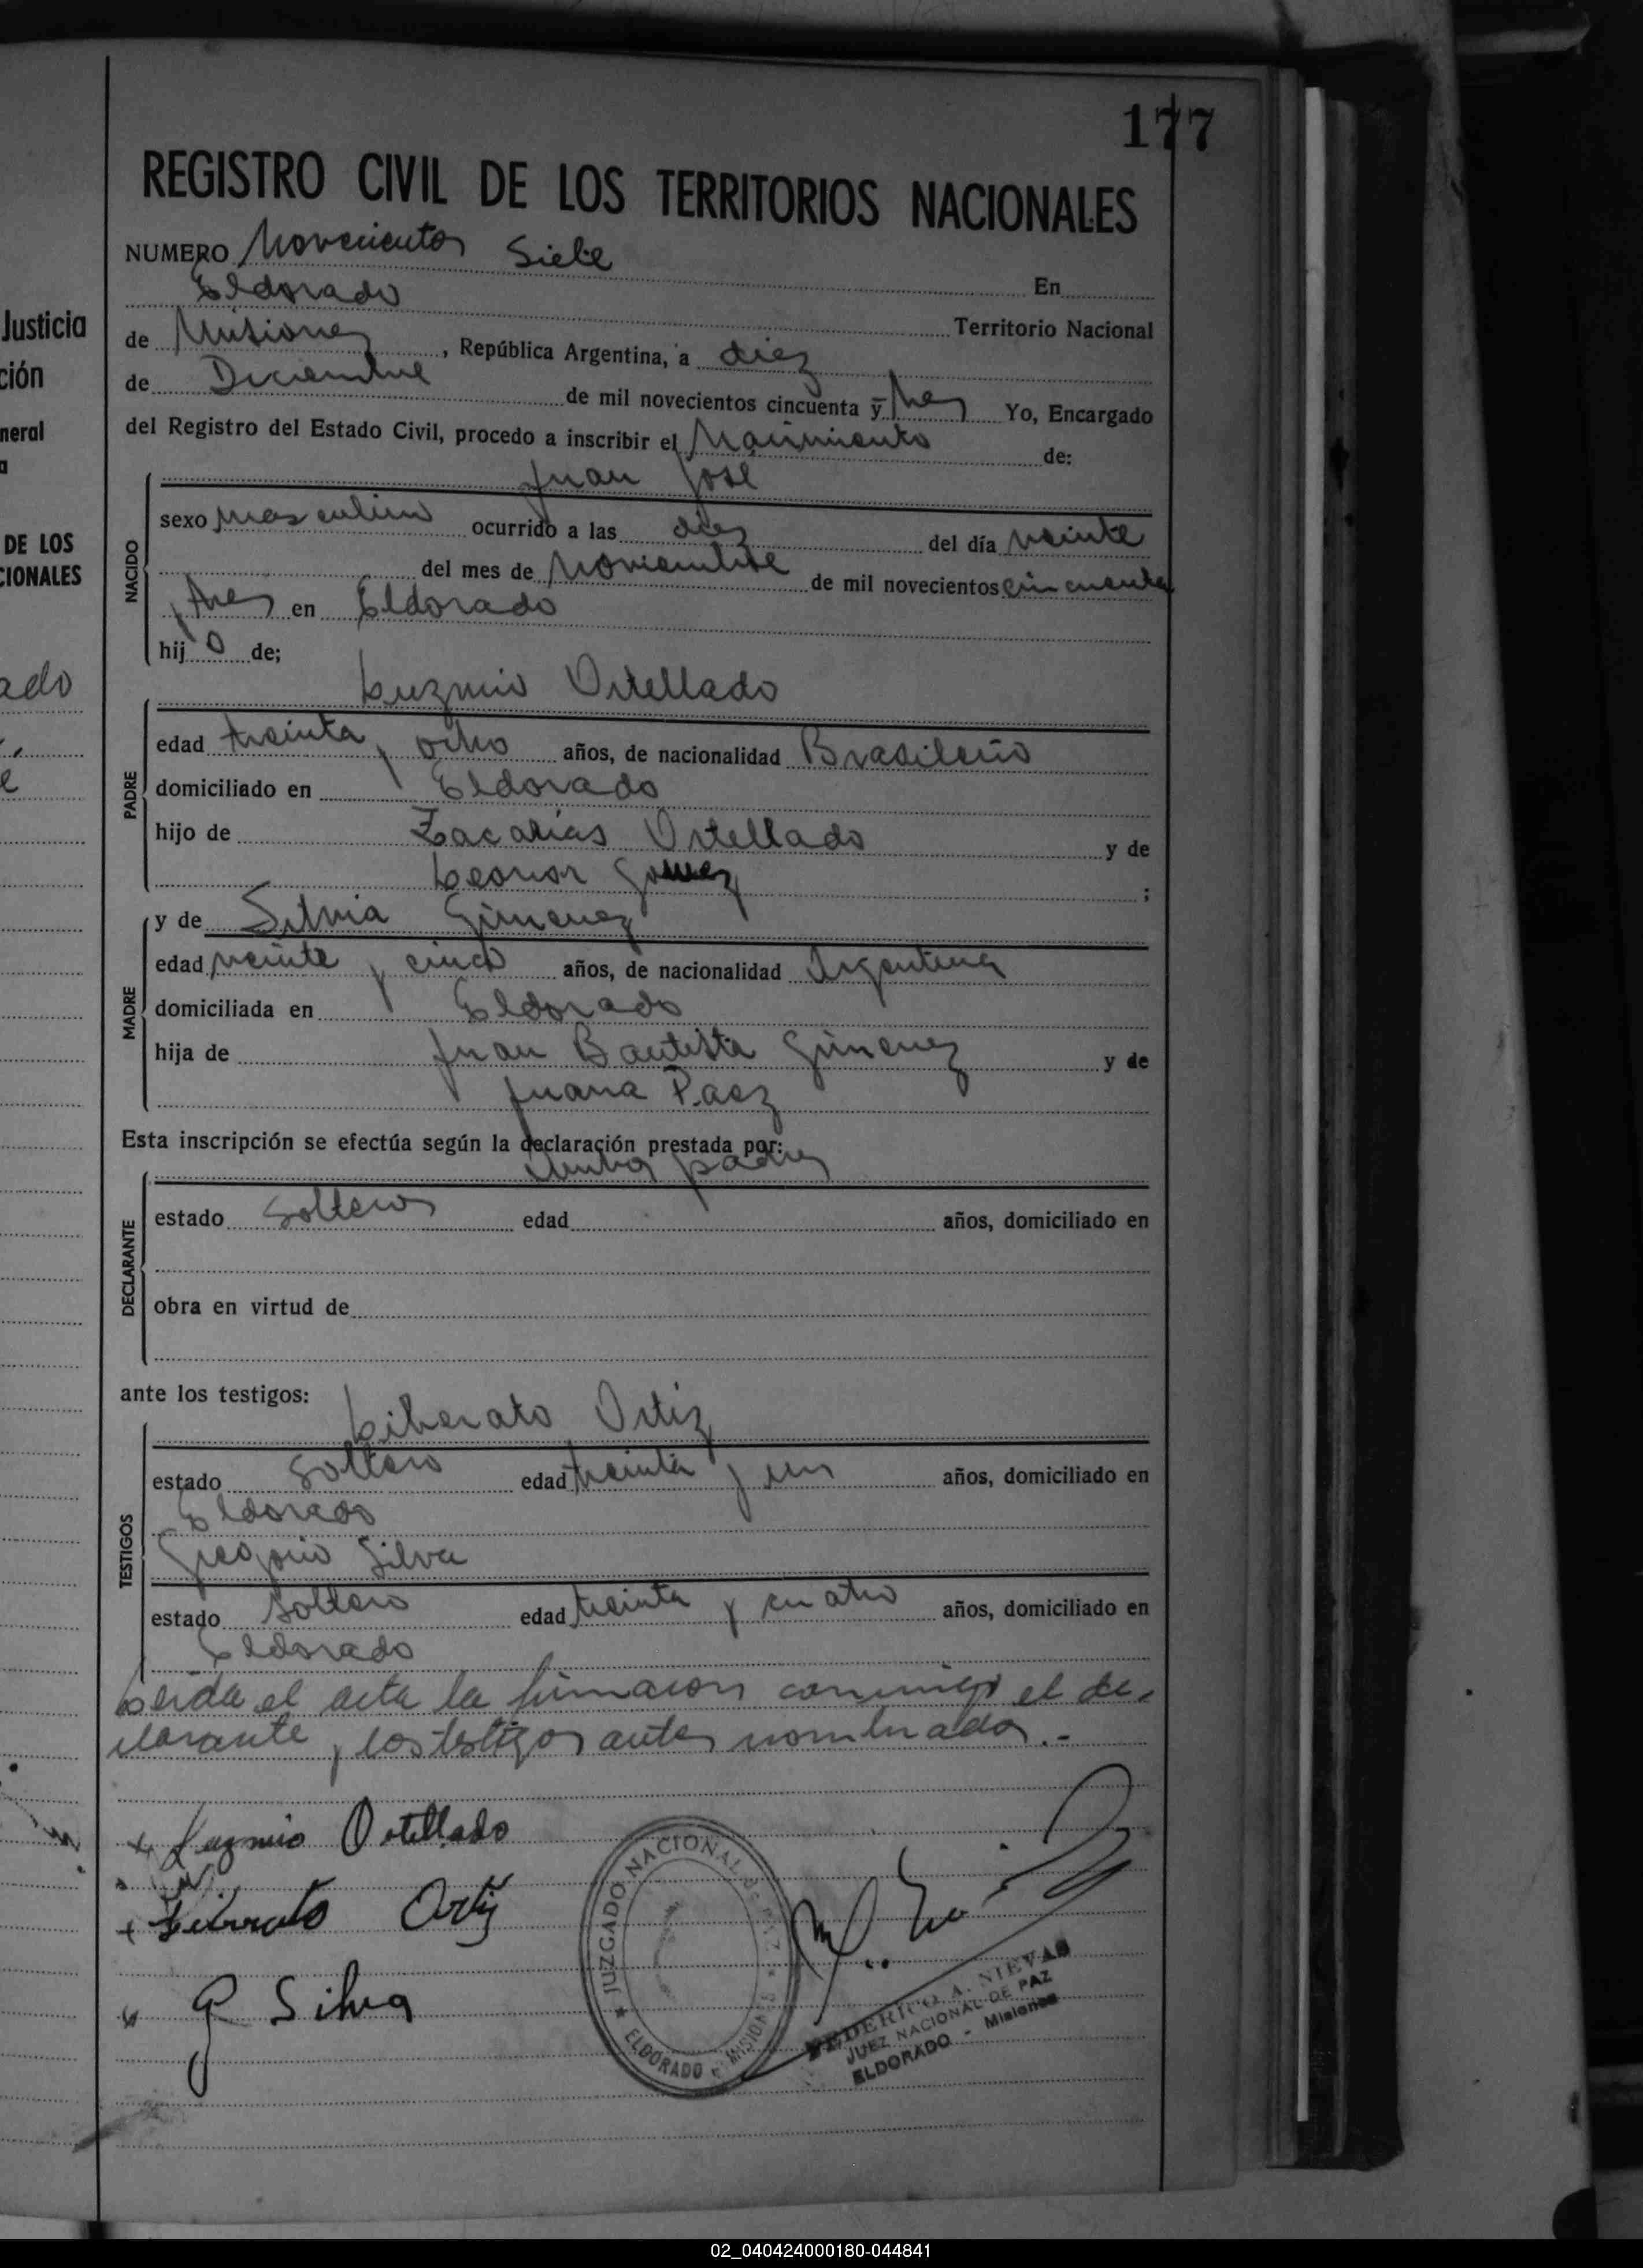 177
REGISTRO CIVIL DE LOS TERRITORIOS NACIONALES
NUMERO Novecientos Siete
En
Eldorado
Territorio Nacional
de Misiones, República Argentina, a diez
de Diciembre de mil novecientos cincuenta y tres Yo, Encargado
del Registro del Estado Civil, procedo a inscribir el Nacimiento de:
Juan José
NACIDO
sexo masculino ocurrido a las diez del día veinte
del mes de Noviembre de mil novecientos cincuenta
y tres en Eldorado
hijo de;
Luzmio Ortellado
PADRE
edad treinta y ocho años, de nacionalidad Brasileño
domiciliado en Eldorado
hijo de Zacarías Ortellado y de
Leonor Gomez ;
MADRE
y de Silvia Gimenez
edad veinte y cinco años, de nacionalidad Argentina
domiciliada en Eldorado
hija de Juan Bautista Gimenez y de
Juana Paez
Esta inscripción se efectúa según la declaración prestada por:
Ambos padres
DECLARANTE
estado Solteros edad años, domiciliado en
obra en virtud de
ante los testigos:
Liberato Ortiz
TESTIGOS
estado Soltero edad treinta y un años, domiciliado en
Eldorado
Gregorio Silva
estado Soltero edad treinta y cuatro años, domiciliado en
Eldorado
Leida el acta la firmaron conmigo el de-
clarante y los testigos antes nombrados.-
x Luzmio Ortellado
x Liberato Ortiz
G Silva
JUZGADO NACIONAL DE PAZ
ELDORADO MISIONES
FEDERICO A. NIEVAS
JUEZ NACIONAL DE PAZ
ELDORADO - Misiones
Justicia
ción
neral
a
DE LOS
CIONALES
ado
02_040424000180-044841